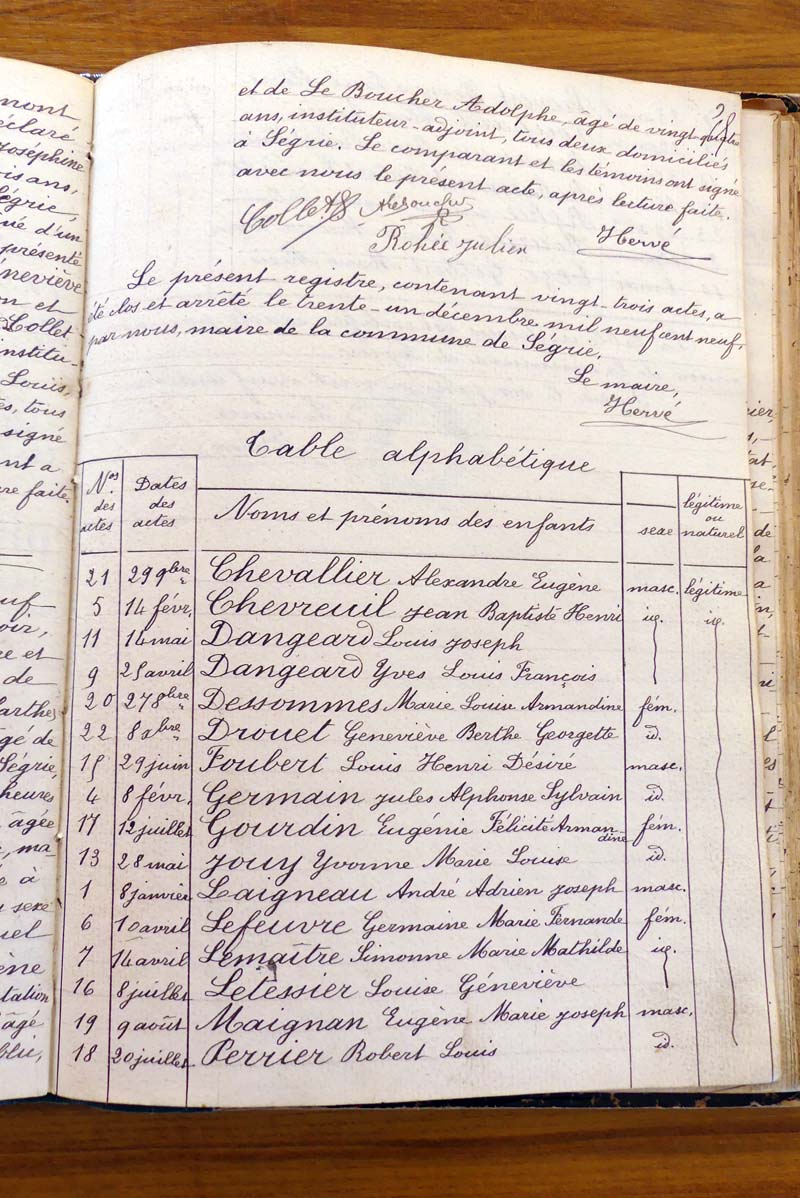 mont
éclaré
Joséphine
ois ans,
égrie,
né d'un
présenté
neviève
on et
Collet
institu-
Louis,
es, tous
signé
nt a
re faite.
et de Le Boucher Adolphe, âgé de vingt-quatre
ans, instituteur-adjoint, tous deux domiciliés
à Ségrie. Le comparant et les témoins ont signé
avec nous le présent acte, après lecture faite.
Collet ALeboucher
Rohée Julien Hervé
Le présent registre, contenant vingt-trois actes, a
été clos et arrêté le trente-un décembre mil neuf cent neuf,
par nous, maire de la commune de Ségrie.
Le maire,
Hervé
Table alphabétique
Nos des actes Dates des actes Noms et prénoms des enfants sexe légitime ou naturel
21 29 9bre Chevallier Alexandre Eugène masc. légitime
5 14 févr. Chevreuil Jean Baptiste Henri id. id.
11 14 mai Dangeard Louis Joseph
9 25 avril Dangeard Yves Louis François
20 27 8bre Dessommes Marie Louise Armandine fém.
22 8 xbre Drouet Geneviève Berthe Georgette id.
15 29 juin Foubert Louis Henri Désiré masc.
4 8 févr. Germain Jules Alphonse Sylvain id.
17 12 juillet Gourdin Eugénie Félicité Arman-
dine fém.
13 28 mai Jouy Yvonne Marie Louise id.
1 8 janvier Laigneau André Adrien Joseph masc.
6 10 avril Lefeuvre Germaine Marie Fernande fém.
7 14 avril Lemaître Simonne Marie Mathilde id.
16 8 juillet Letessier Louise Géneviève
19 9 août Maignan Eugène Marie Joseph masc.
18 20 juillet Perrier Robert Louis id.